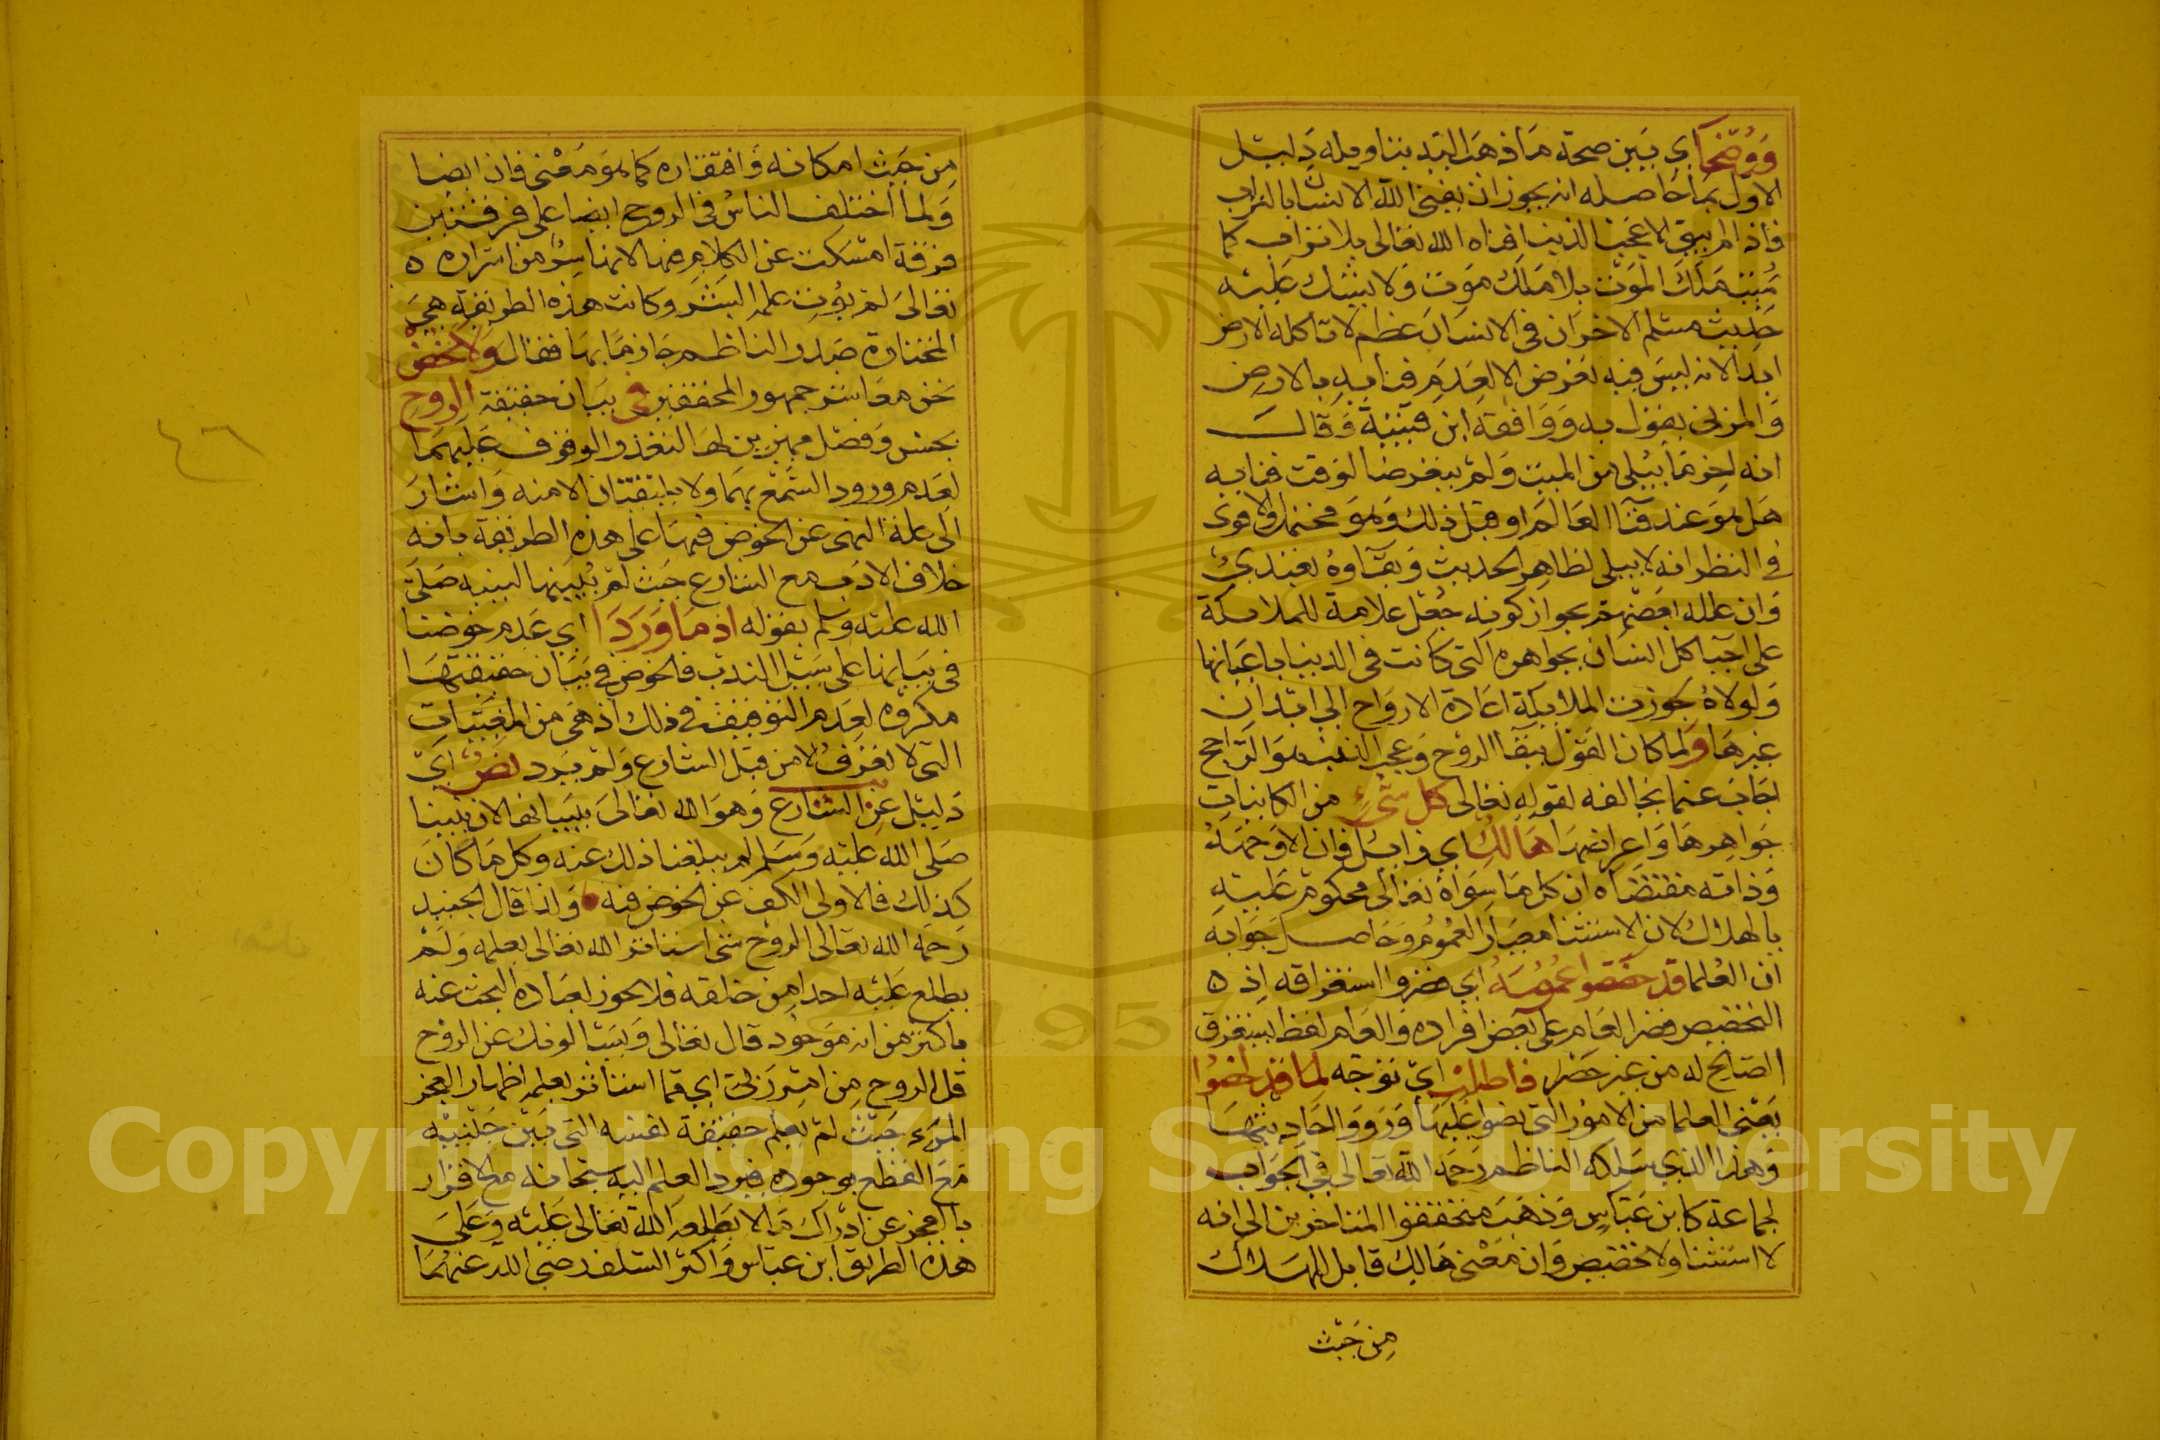 ووضحا اي بين صحة ما ذهب اليه بتاويله دليل
الاول بما حاصله انه يجوز ان يفني الله الانسان بالتراب
فاذا لم يبق الا عجب الذنب افناه الله تعالى بلا تراب كما
يميت ملك الموت بلا ملك موت ولا يشك عليه
حديث مسلم الاخر ان في الانسان عظم لا تاكله الارض
ابدا لانه ليس فيه تعرض الا لعدم فنايه بالارض
والمزني يقول به ووافقه ابن قتيبة وقال
انه اخر ما يبلى من الميت ولم يتعرضا لوقت فنايه
هل هو عند فنا العالم او قبل ذلك وهو محتمل والاقوى
في النظر انه لا يبلى لظاهر الحديث وبقاوه تعبدي
وان علله بعضهم بجواز كونه جعل علامة للملايكة
على احيا كل انسان بجواهره التي كانت في الدنيا باعيانها
ولولاه لجوزت الملايكة اعادة الارواح الى ابدان
غيرها ولما كان القول ببقا الروح وعجب الذنب هو الراجح
اجاب عنما يخالفه لقوله تعالى كل شيء من الكاينات
جواهرها واعراضها هالك اي زايل فان الا وجهه
وذاته مقتضاه ان كل ما سواه تعالى محكوم عليه
بالهلاك لان الاستثنا معيار العموم وحاصل جوابه
ان العلما قد خصصوا عمومه اي قصروا استغراقه اذ ه
التخصيص قصر العام على بعض افراده والعام لفظ يستغرق
الصالح له من غير حصر فاطلب اي توجه لما قد لخصوا
يعني العلما من الامور التي نصوا عليها ورووا احاديثها
وهذا الذي سلكه الناظم رحمه الله تعالى في الجواب
لجماعة كابن عباس وذهب متحققوا المتاخرين الى انه
لا استثنا ولا تخصيص وان معنى هالك قابل للهلاك
من حيث
من حيث امكانه وافتقاره كما هو معنى فان ايضا
ولما اختلف الناس في الروح ايضا على فرقتين
فرقة امسكت عن الكلام فيها لانها سر من اسراره ه
تعالى لم يؤت علمه البشر وكانت هذه الطريقة هي
المختارة صدر الناظم جازما بها فقال ولا نخض
نحن معاشر جمهور المحققين في بيان حقيقة الروح
بجنس وفصل مميزين لها لتعذر الوقوف عليهما
لعدم ورود السمع بهما ولا يلتقتان الا منه واشار
الى علة النهي عن الخوض فيها على هذه الطريقة بانه
خلاف الادب مع الشارع حيث لم يبينها لنبيه صلى
الله عليه وسلم بقوله اذ ما وردا اي عدم خوضنا
في بيانها على سبيل الندب فالخوض في بيان حقيقتها
مكروه لعدم التوقيف في ذلك اذ هي من المغيبات
التي لا تعرف الا من قبل الشارع ولم يرد نص اي
دليل عن الشارع وهو الله تعالى ببيانها لان نبينا
صلى الله عليه وسلم لم يبلغنا ذلك عنه وكل ما كان
كذلك فالاولى الكف عن الخوض فيه ولذا قال الجنيد
رحمه الله تعالى الروح شي استاثر الله تعالى بعلمه ولم
يطلع عليه احدا من خلقه فلا يجوز لعباده البحث عنه
باكثر من انه موجود قال تعالى ويسالونك عن الروح
قل الروح من امر ربي اي مما استاثر بعلمه اظهارا لعجز
المرء حيث لم يعلم حقيقة نفسه التي بين جنبيه
مع القطع بوجوده فيرد العلم اليه سبحانه مع الاقرار
بالعجز عن ادراك ما لا يطلعه الله تعالى عليه وعلى
هذه الطريق ابن عباس واكثر السلف رضي الله عنهما
٤٦
Copyright © King Saud University
1957